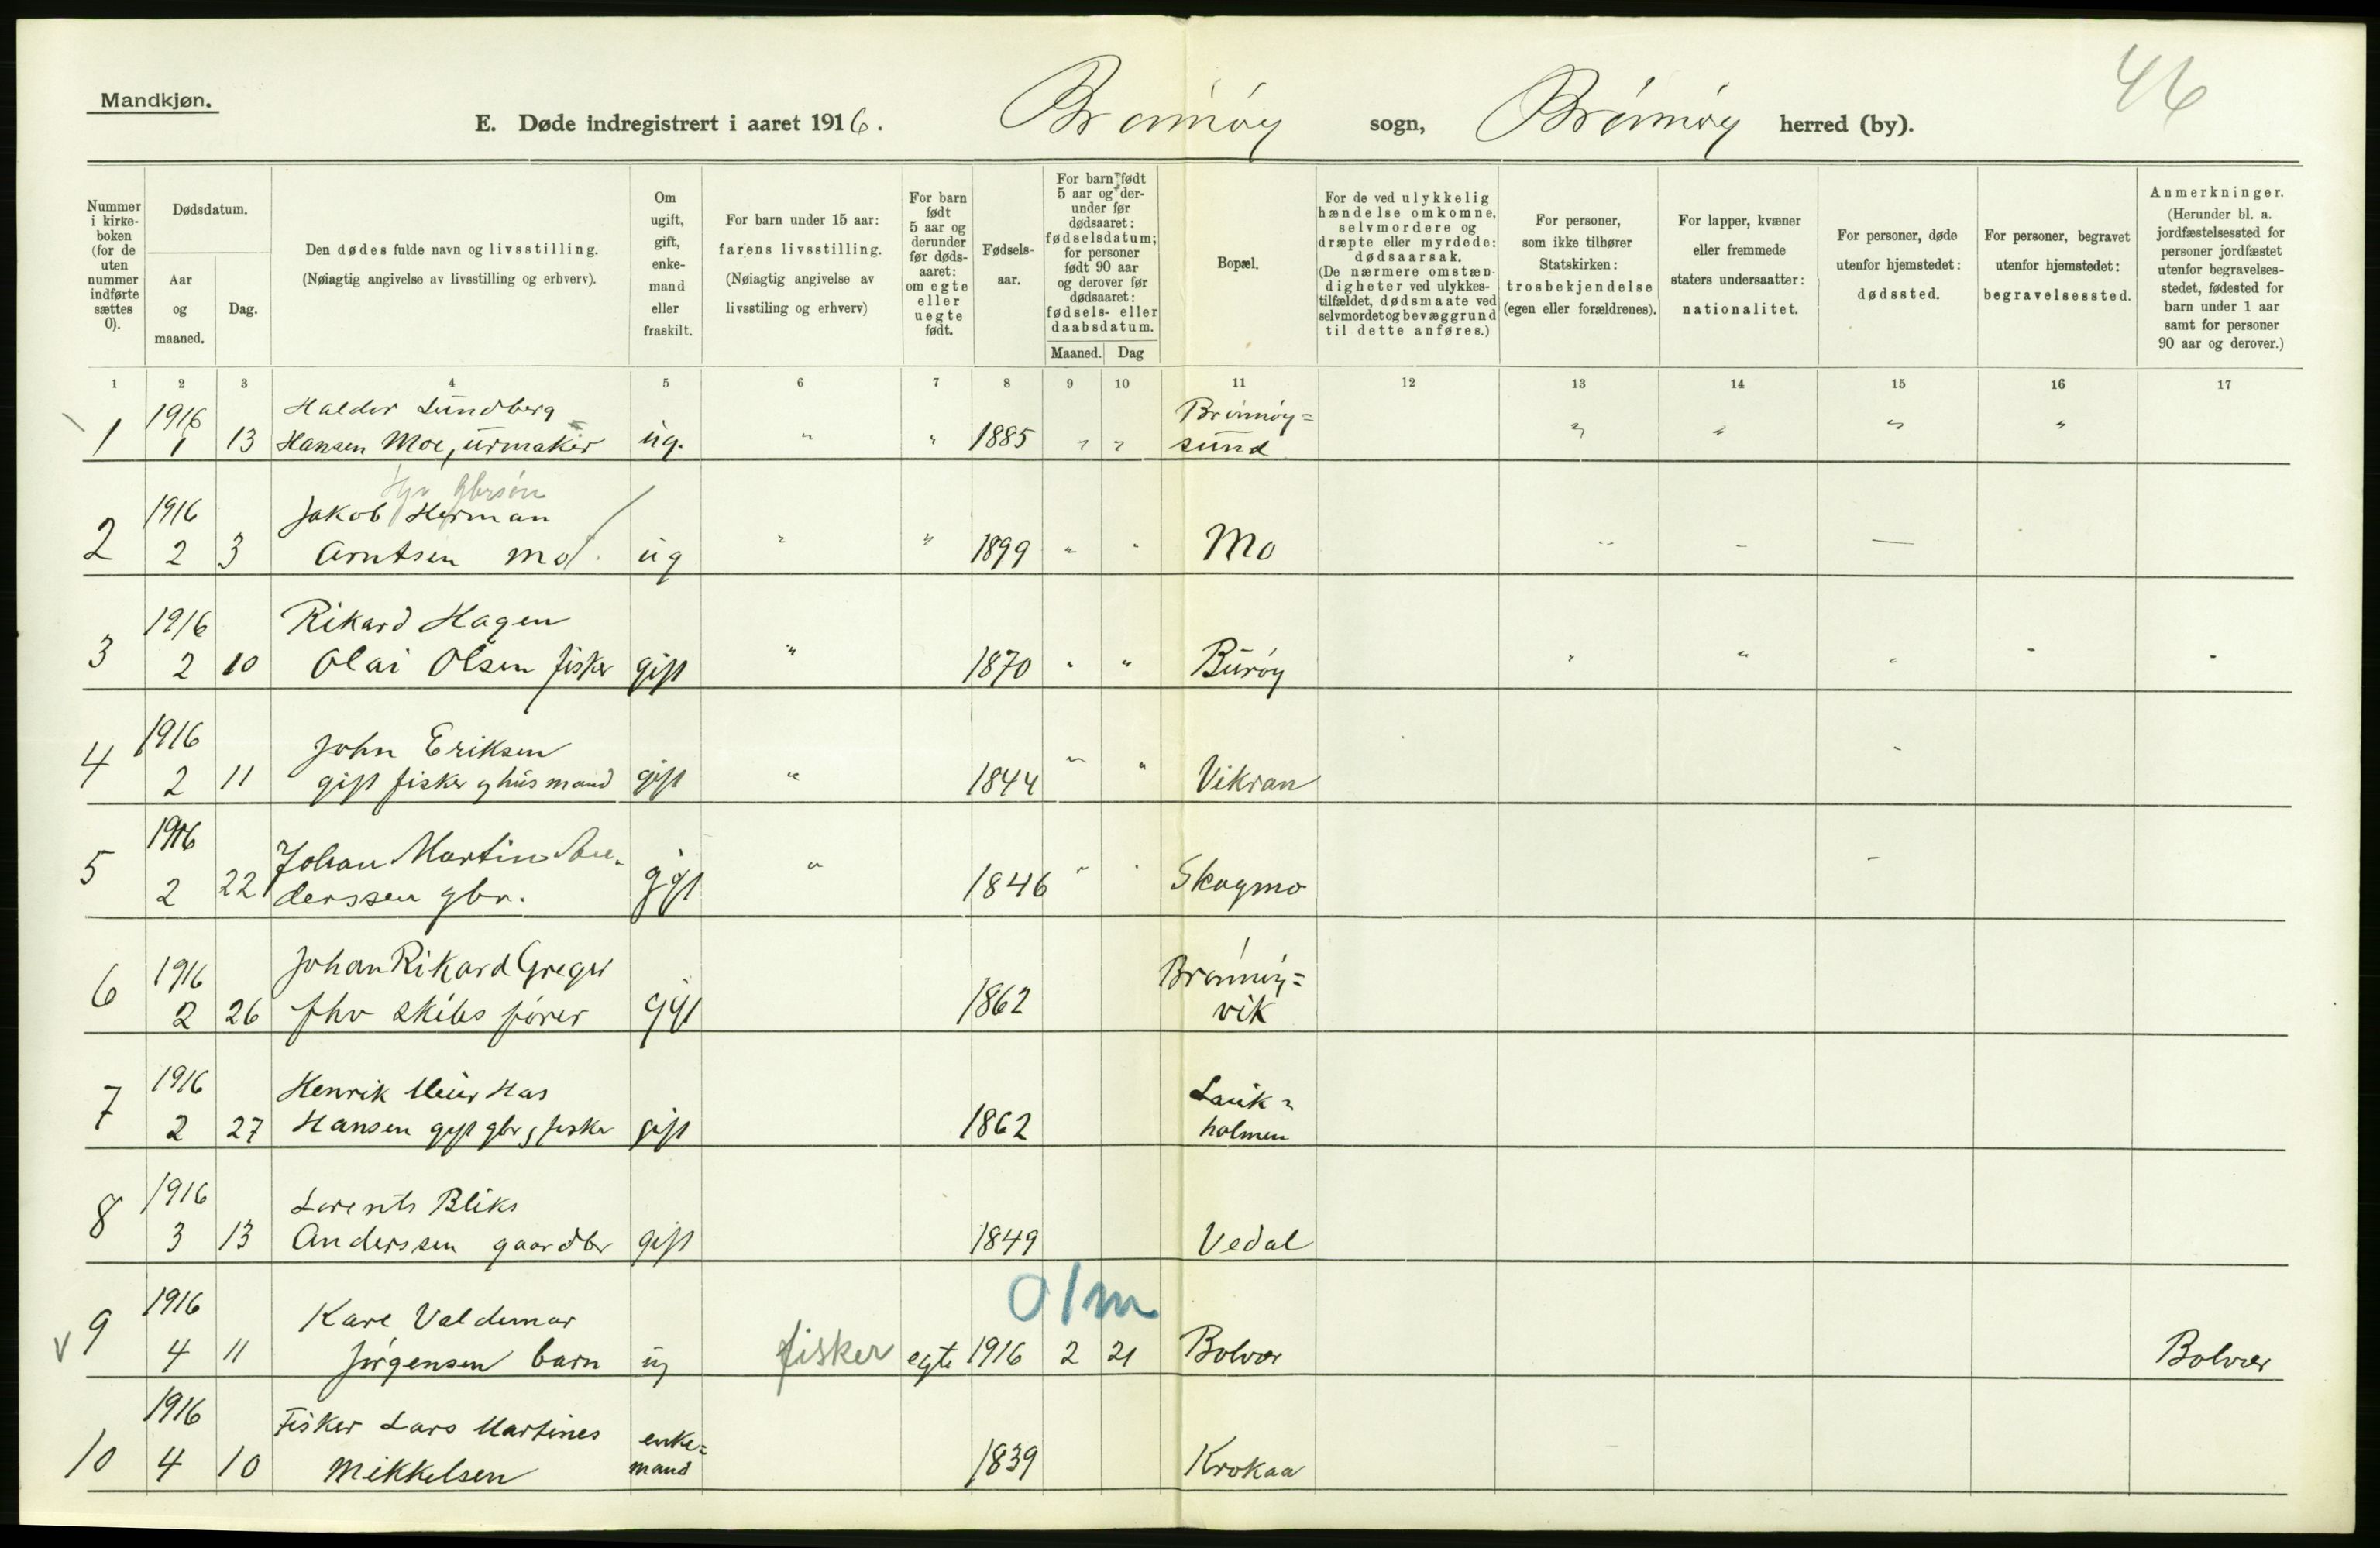 46
Mandkjøn.
E. Døde indregistrert i aaret 1916. Brønnøy sogn, Brønnøy herred (by).
Nummer i kirkeboken (for de uten nummer indførte sættes 0).
Dødsdatum.
Aar og maaned.
Dag.
Den dødes fulde navn og livsstilling. (Nøiagtig angivelse av livsstilling og erhverv).
Om ugift, gift, enkemand eller fraskilt.
For barn under 15 aar: farens livsstilling. (Nøiagtig angivelse av livsstiling og erhverv)
For barn født 5 aar og derunder før dødsaaret: om egte eller uegte født.
Fødselsaar.
For barn født 5 aar og derunder før dødsaaret: fødselsdatum; for personer født 90 aar og derover før dødsaaret: fødsels- eller daabsdatum.
Maaned. Dag
Bopæl.
For de ved ulykkelig hændelse omkomne, selvmordere og dræpte eller myrdede: dødsaarsak. (De nærmere omstændigheter ved ulykkestilfældet, dødsmaate ved selvmordet og bevæggrund til dette anføres.)
For personer, som ikke tilhører Statskirken: trosbekjendelse (egen eller forældrenes).
For lapper, kvæner eller fremmede staters undersaatter: nationalitet.
For personer, døde utenfor hjemstedet: dødssted.
For personer, begravet utenfor hjemstedet: begravelsessted.
Anmerkninger. (Herunder bl. a. jordfæstelsessted for personer jordfæstet utenfor begravelsesstedet, fødested for barn under 1 aar samt for personer 90 aar og derover.)
1 2 3 4 5 6 7 8 9 10 11 12 13 14 15 16 17
1916 Haldor Lundberg Brønnøy=
1 1 13 Hansen Moe, urmaker ug. " " 1885 " " sund " " " "
gbrsøn
1916 Jakob Herman
2 2 3 Arntsen Mo ug " " 1899 " " Mo " - —
1916 Rikard Hagen
3 2 10 Olai Olsen fisker gift " 1870 " " Burøy " " " " "
1916 John Eriksen
4 2 11 gift fisker og husmand gift " 1844 " " Vikran "
1916 Johan Martin An-
5 2 22 derssen gbr. gift " 1846 " " Skogmo "
1916 Johan Rikard Greger Brønnøy=
6 2 26 fhv skibsfører gift 1862 vik
1916 Henrik Meier Has
7 2 27 Hansen gift gbr og fisker gift 1862 holmen
1916 Lorents Bliks
8 3 13 Anderssen gaardbr gift 1849 Vedal
0 1 m
1916 Karl Valdemar
v 9 4 11 Jørgensen barn ug fisker egte 1916 2 21 Bolvær Bolvær
1916 Fisker Lars Martines enke=
10 4 10 Mikkelsen mand 1839 Krokaa